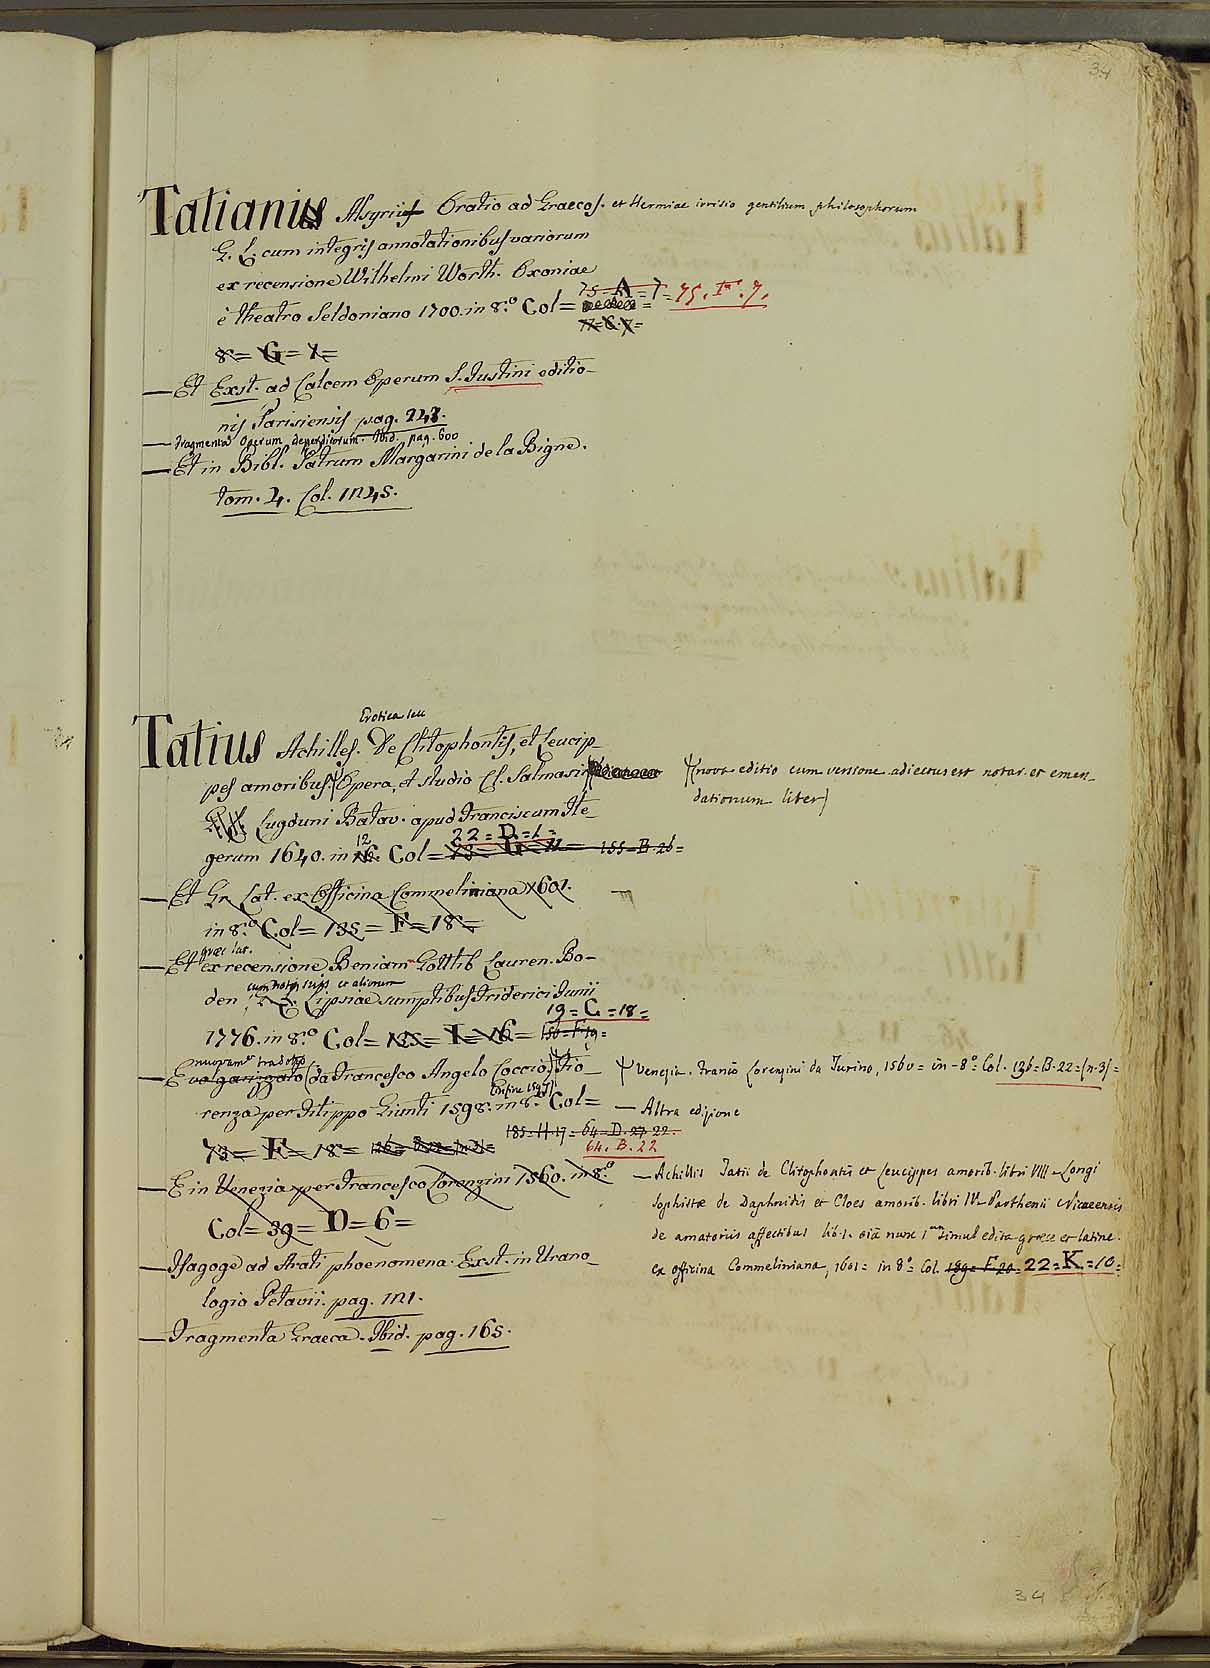 34
Tatianus Assyrius Oratio ad Graecos. et Hermiae irrisio gentilium philosophorum
G. L. cum integris annotationibus variorum
ex recensione Wilhelmi Worth. Oxoniae
è theatro Seldoniano 1700. in 8.º Col= 75=A=7= 75. F. 7.
8=G=7=
— Et Exst. ad Calcem Operum S. Justini editio-
nis Parisiensis pag. 247.
— Fragmenta Operum deperditorum. Ibid. pag. 600
— Et in Bibl. Patrum Margarini de la Bigne.
tom. 4. Col. 1745.
Erotica seu
Tatius Achilles. De Clitophontis, et Leucip-
pes amoribus. (Opera, et studio Cl. Salmasii
(nova editio cum versione adiectus est notar. et emen-
dationum liber)
Lugduni Batav. apud Franciscum He-
22=D=1=
gerum 1640. in 12. Col= 73=G=11= 155=B.26=
— Et Gr. Lat. ex Officina Commeliniana 1601.
in 8.º Col= 135=F=18=
graec lat.
— Et ex recensione Beniam Gottlib Lauren. Bo-
cum notis suis et aliorum
den Lipsiae sumptibus Friderici Junii
19=C=18=
1776. in 8.º Col= 133=I=16= 150=F.19=
nuovam.e tradotto
— E volgarizzato (da Francesco Angelo Coccio) Fio-
renza per Filippo Giunti 1598. in 8.º Col=
(in fine 1597)
185=H.17= 64=D.27.22.
73=F=18=
64. B. 22
Venezia. Franco Lorenzini da Turino, 1560= in=8º Col. 136=B.22=(n.3)=
— Altra edizione
— E in Venezia per Francesco Lorenzini 1560. in 8.º
Col= 39=D=6=
— Achillis Tatii de Clitophontis et Leucippes amorib. libri VIII — Longi
Sophistae de Daphnidis et Cloes amorib. libri IV — Parthenii Nicaeensis
de amatoriis affectibus lib. 1. oia nunc 1um simul edita graece et latine.
ex officina Commeliniana, 1601= in 8º= Col. 189=F.20= 22=K=10=
— Isagoge ad Arati phoenomena. Exst. in Urano-
logio Petavii. pag. 121.
— Fragmenta Graeca. Ibid. pag. 165.
34